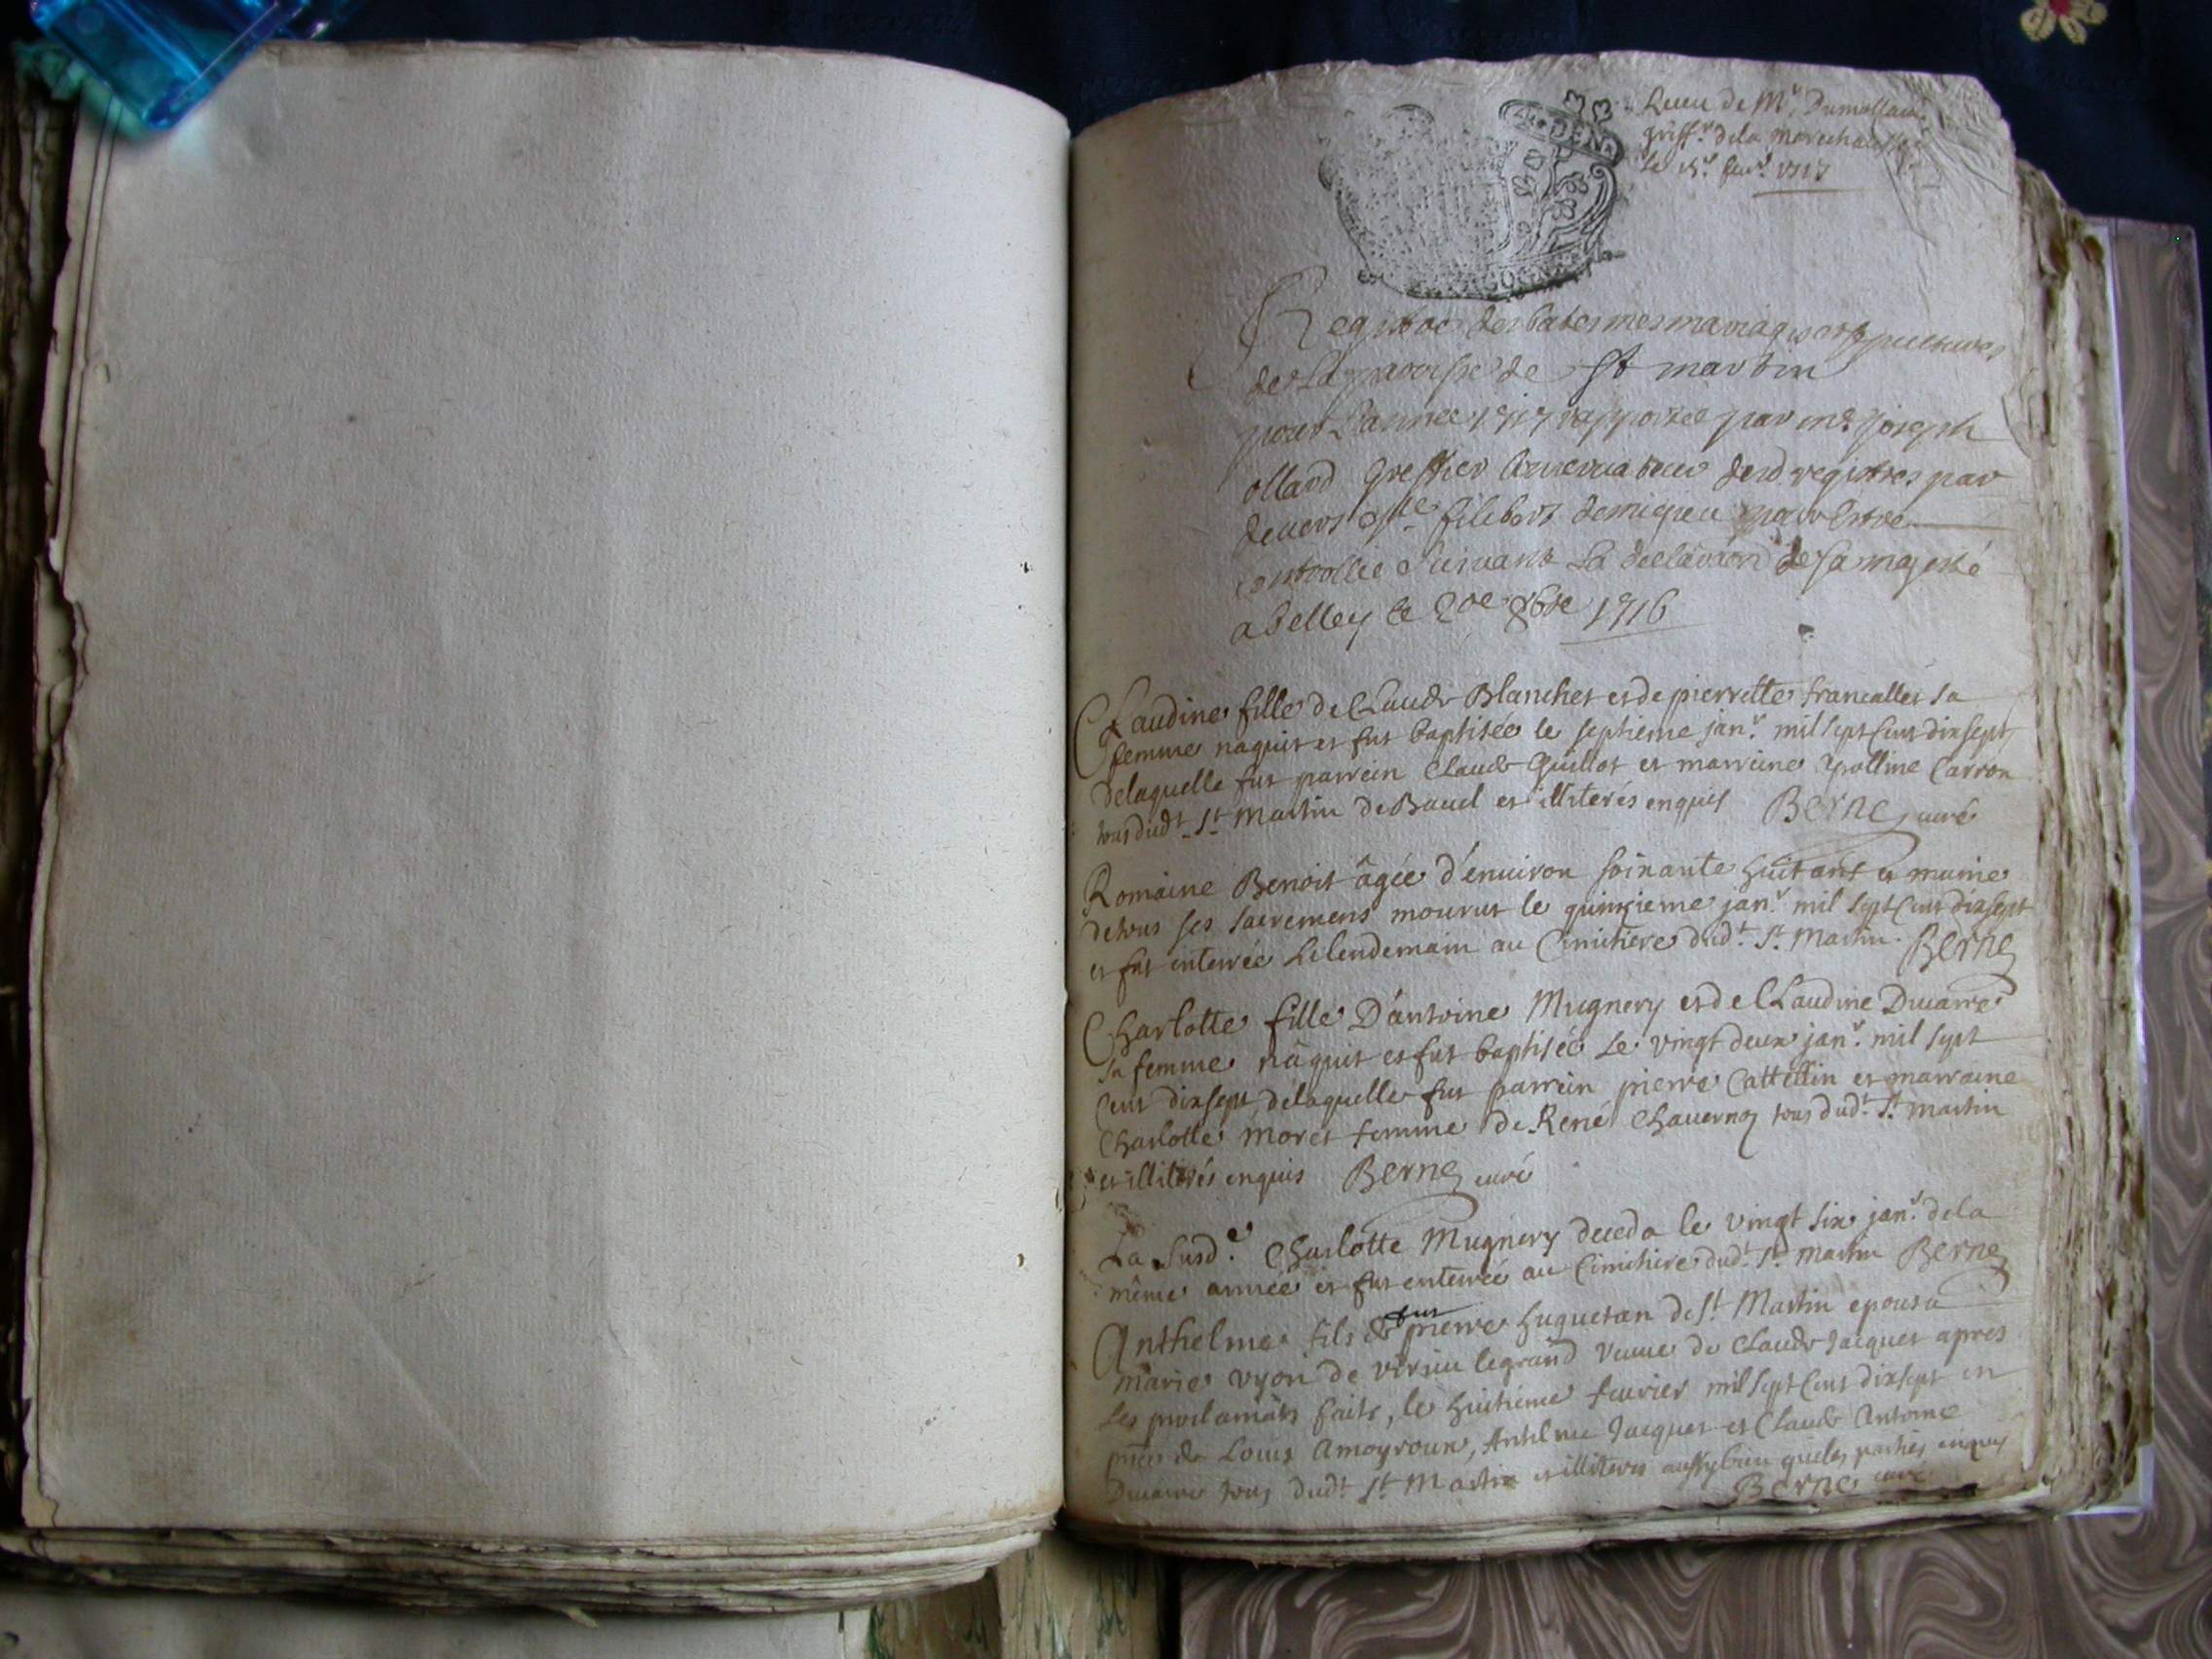 Receu de Mr. Dumollard
greff. de la marechaussée
Le 15e. feur. 1717
Registre des batesmes mariages et sepultures
de La paroisse de St martin
pour L'année 1717 rapportée par me. joseph
ollard greffier Conservateur desd registres par
devers
controllie Suivant La declaraōn de sa majesté
a belley le 2oe 8bre 1716
Claudine fille de Claude Blanchet et de pierrette francallet sa
femme naquit et fut baptisée le septieme janr. mil sept Cent dix sept
de laquelle fut parrein Claude Guillot et marreine Apolline Carron
tous dudt. St Martin de Bavel et illiterés enquis Berne, curé
Romaine Benoit âgée d'environ soixante huit ans et munie
de tous ses sacremens mourut le quinzieme janr. mil sept Cent dix sept
et fut enterrée Le lendemain au Cimitiere dudt. St. Martin. Berne
Charlotte fille D'antoine Mugnery et de Claudine Ducarre
sa femme nâquit et fut baptisée Le vingt deux janr. mil sept
Cent dix sept, de laquelle fut parrein pierre Cattellin et marraine
Charlotte moret femme de René Chavernoz tous dudt. St. martin
et illiterés enquis Berne curé
La susde. Charlotte Mugnery deceda le vingt six janr. de la
même année et fut enterrée au Cimitiere dudt. St. Martin Berne
Anthelme fils de fut pierre huguetan de St Martin epousa
Marie vyon de virieu legrand veuve de Claude Jacquet apres
Les proclamāts faits, le huitieme fevrier mil sept Cent dix sept en
pnce de Louis Amoyroux, Anthelme Jacquet et Claude Antoine
Ducarre tous dudt. St Martin et illiteres aussy bien que les parties enquis
Berne curé